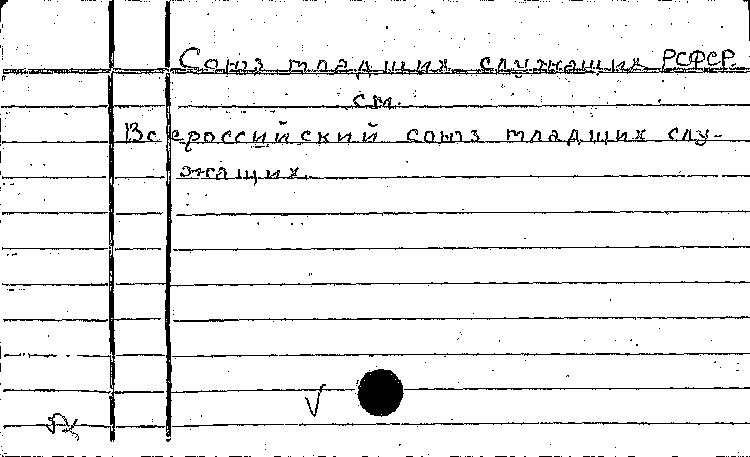 Союз младших служащих РСФСР
см.
Всероссийский союз младших слу-
жащих.